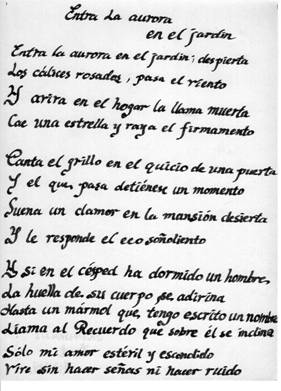 Entra la aurora
en el jardín
Entra la aurora en el jardín; despierta
Los cálices rosados, pasa el viento
Y aviva en el hogar la llama muerta
Cae una estrella y raya el firmamento
Canta el grillo en el quicio de una puerta
Y el que pasa detiénese un momento
Suena un clamor en la mansión desierta
Y le responde el eco soñoliento
Y si en el césped ha dormido un hombre,
La huella de su cuerpo se adivina
Hasta un mármol que tengo escrito un nombre
Llama al Recuerdo que sobre él se inclina
Sólo mi amor estéril y escondido
Vive sin hacer señas ni hacer ruido